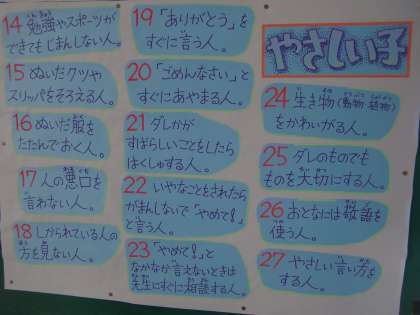 14 勉強やスポーツが
できてもじまんしない人。
15 ぬいだクツや
スリッパをそろえる人。
16 ぬいだ服を
たたんでおく人。
17 人の悪口を
言わない人。
18 しかられている人の
方を見ない人。
19 「ありがとう」を
すぐに言う人。
20 「ごめんなさい」と
すぐにあやまる人。
21 ダレかが
すばらしいことをしたら
はくしゅする人。
22 いやなことをされたら
がまんしないで「やめて!」
と言う人。
23 「やめて!」と
なかなか言えないときは
先生にすぐに相談する人。
やさしい子
24 生き物(動物 植物)
をかわいがる人。
25 ダレのものでも
ものを大切にする人。
26 おとなには敬語を
使う人。
27 やさしい言い方を
する人。